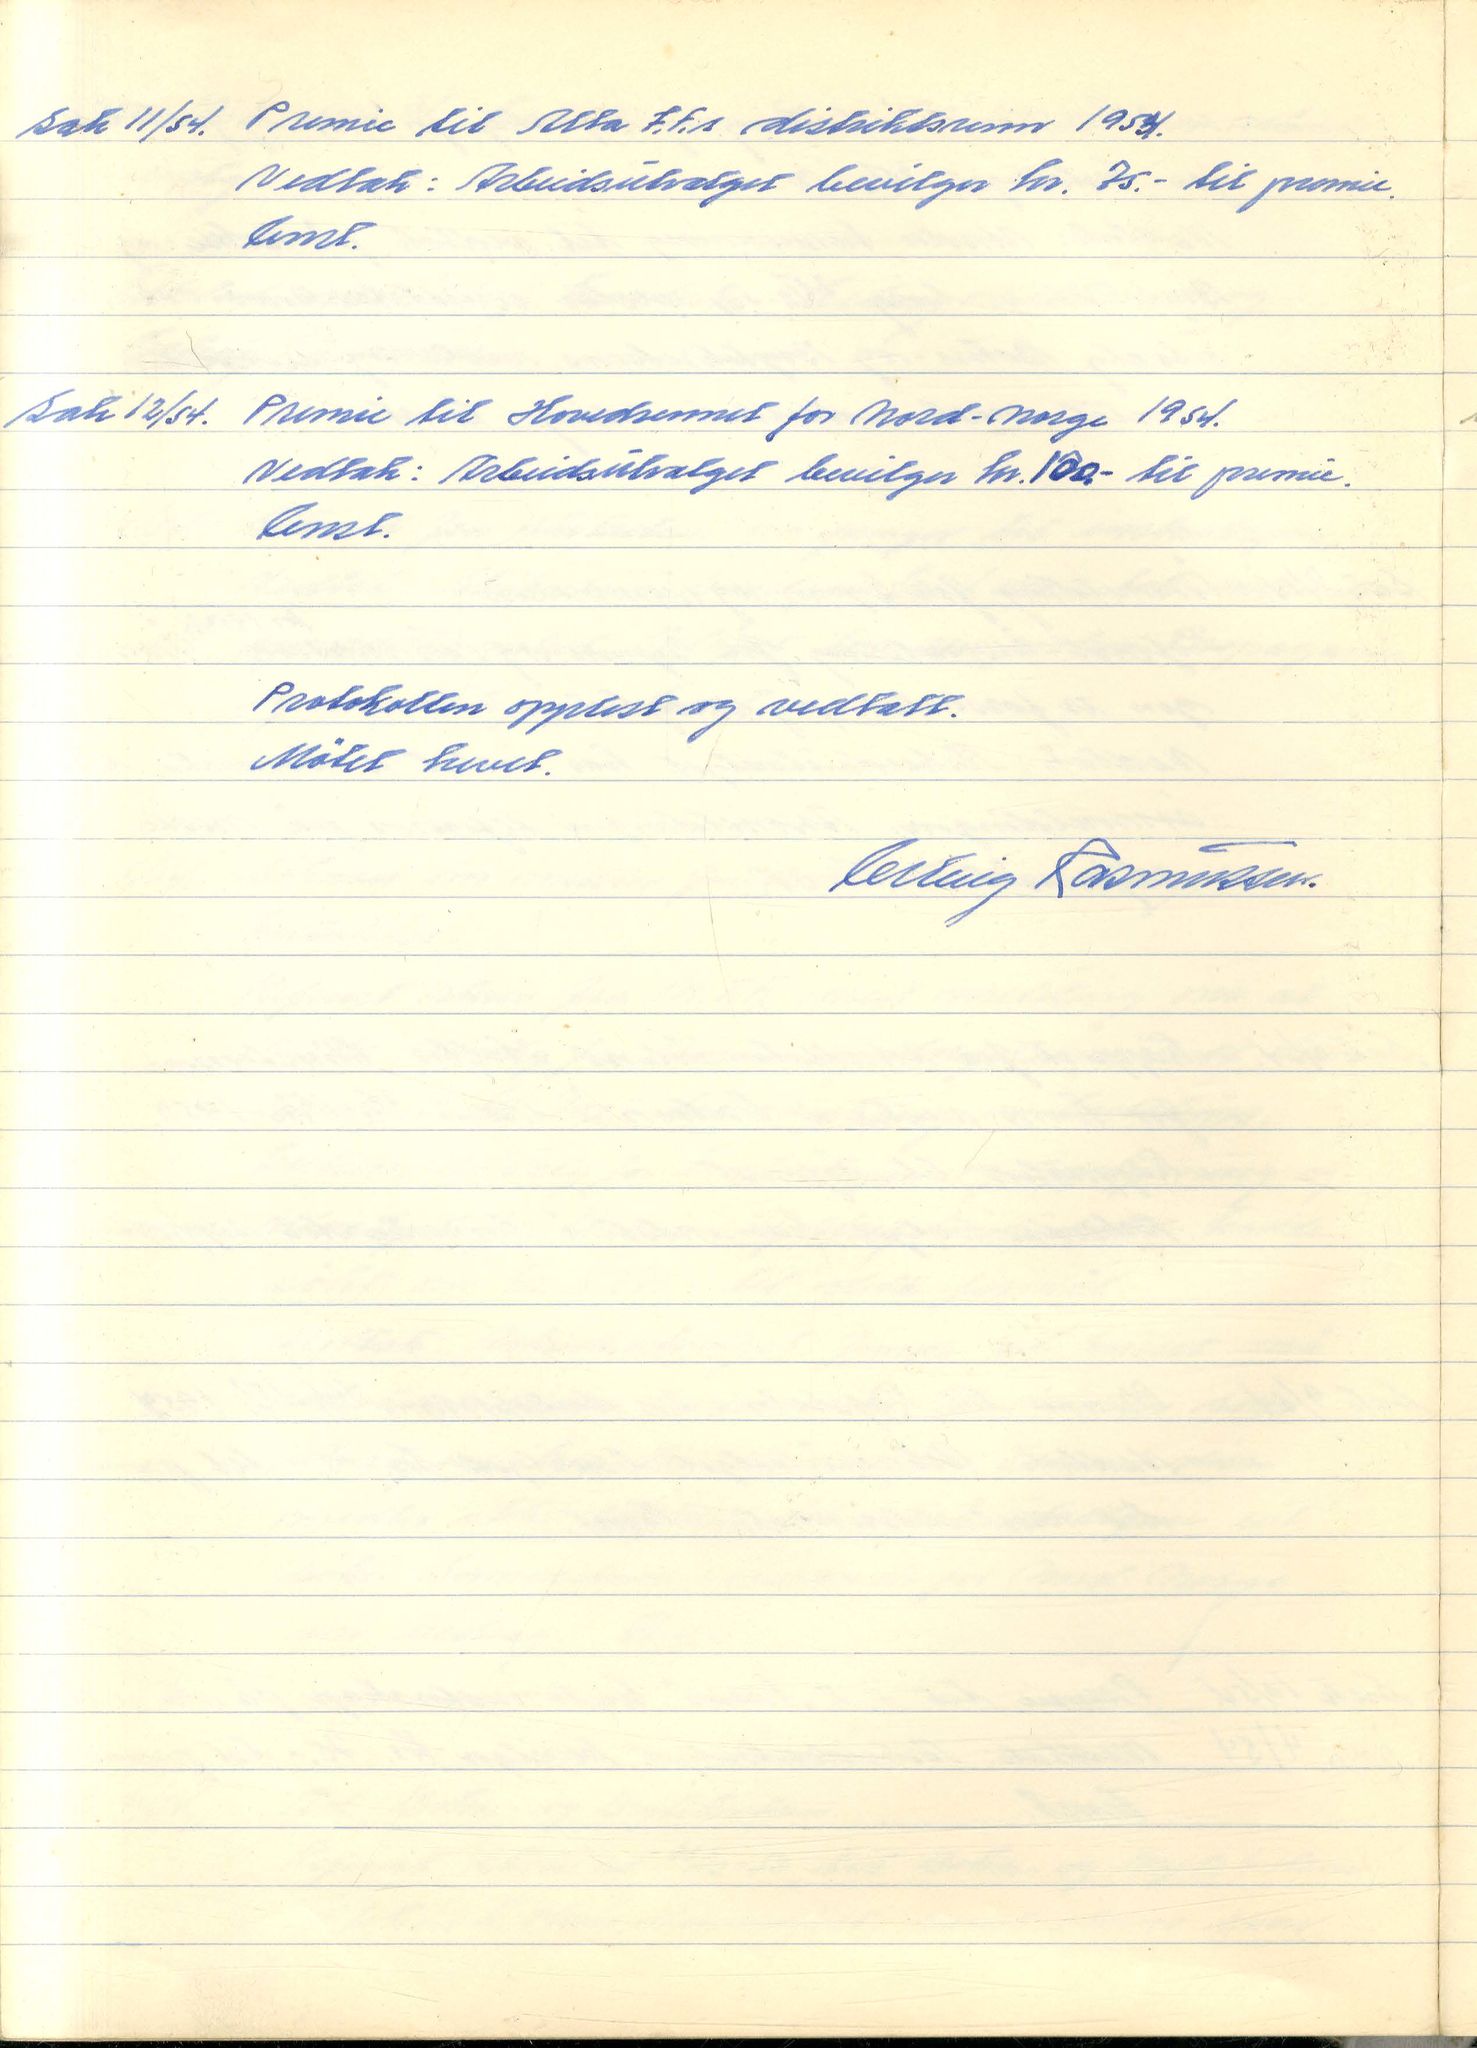 Sak 11/54. Premie til Alta I.F.s distriktsrenn 1954.
Vedtak: Arbeidsutvalget bevilger kr. 75.- til premie.
Enst.
Sak 12/54. Premie til Hovedrennet for Nord-Norge 1954.
Vedtak: Arbeidsutvalget bevilger kr. 100.- til premie.
Enst.
Protokollen opplest og vedtatt.
Møtet hevet.
Rasmussen.